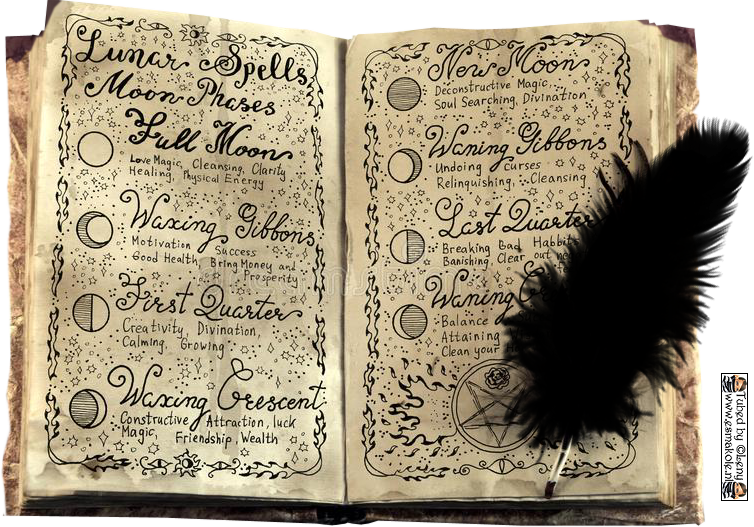 Lunar Spells
Moon Phases
Full Moon
Love Magic, Cleansing, Clarity
Healing, Physical Energy
Waxing Gibbons
Motivation Success
Good Health Bring Money and
Prosperity
First Quarter
Creativity, Divination,
Calming, Growing
Waxing Crescent
Constructive Attraction, luck
Magic, Friendship, Wealth
New Moon
Deconstructive Magic,
Soul Searching, Divination
Waning Gibbons
Undoing curses
Relinquishing, Cleansing
Last Quarter
Breaking Bad Habbits
Banishing, Clear out
Waning
Balance
Attaining
Clean your
Tubed by ©Isny
www.esmakole.nl